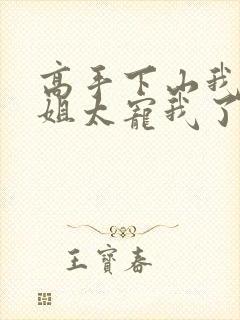 高手下山我
姐太宠我了
王寶春